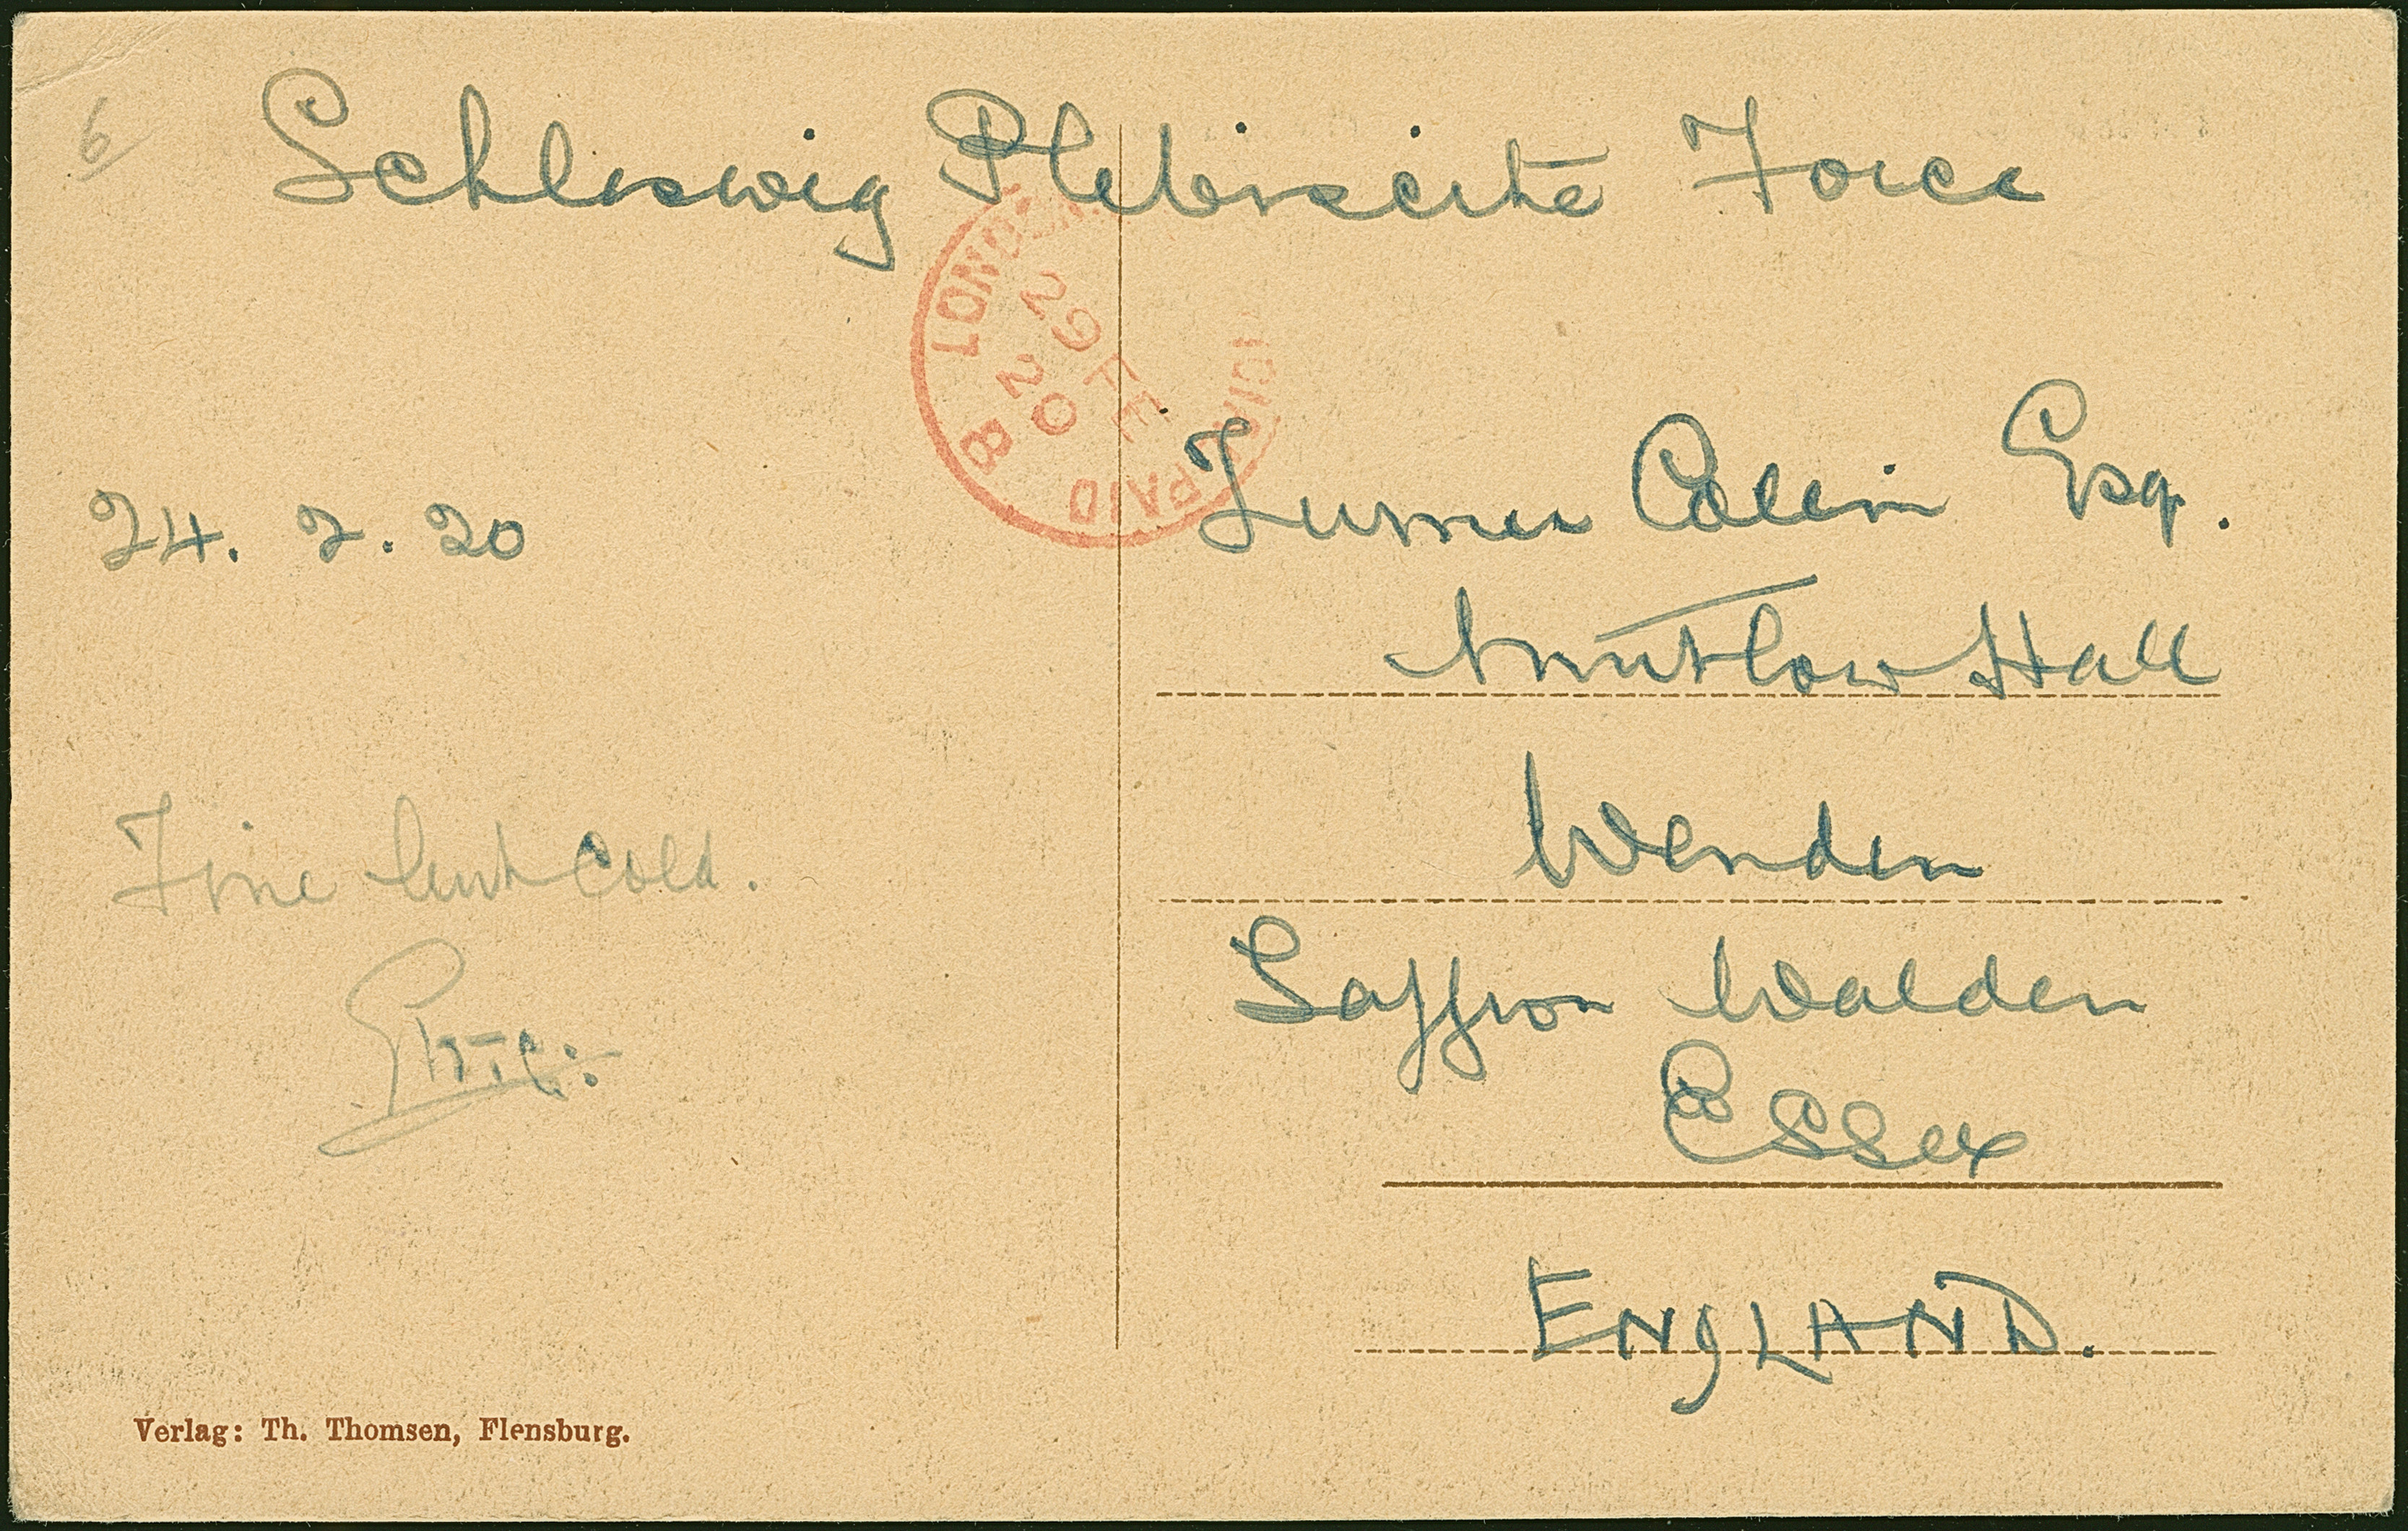 6
Schleswig Plebiscite Force
LONDON
29 FE
20
PAID
B
24. 2. 20
Turner Collin Esq.
Mutlow Hall
Wenden
Saffron Walden
Essex
ENGLAND.
Fine but Cold.
Verlag: Th. Thomsen, Flensburg.